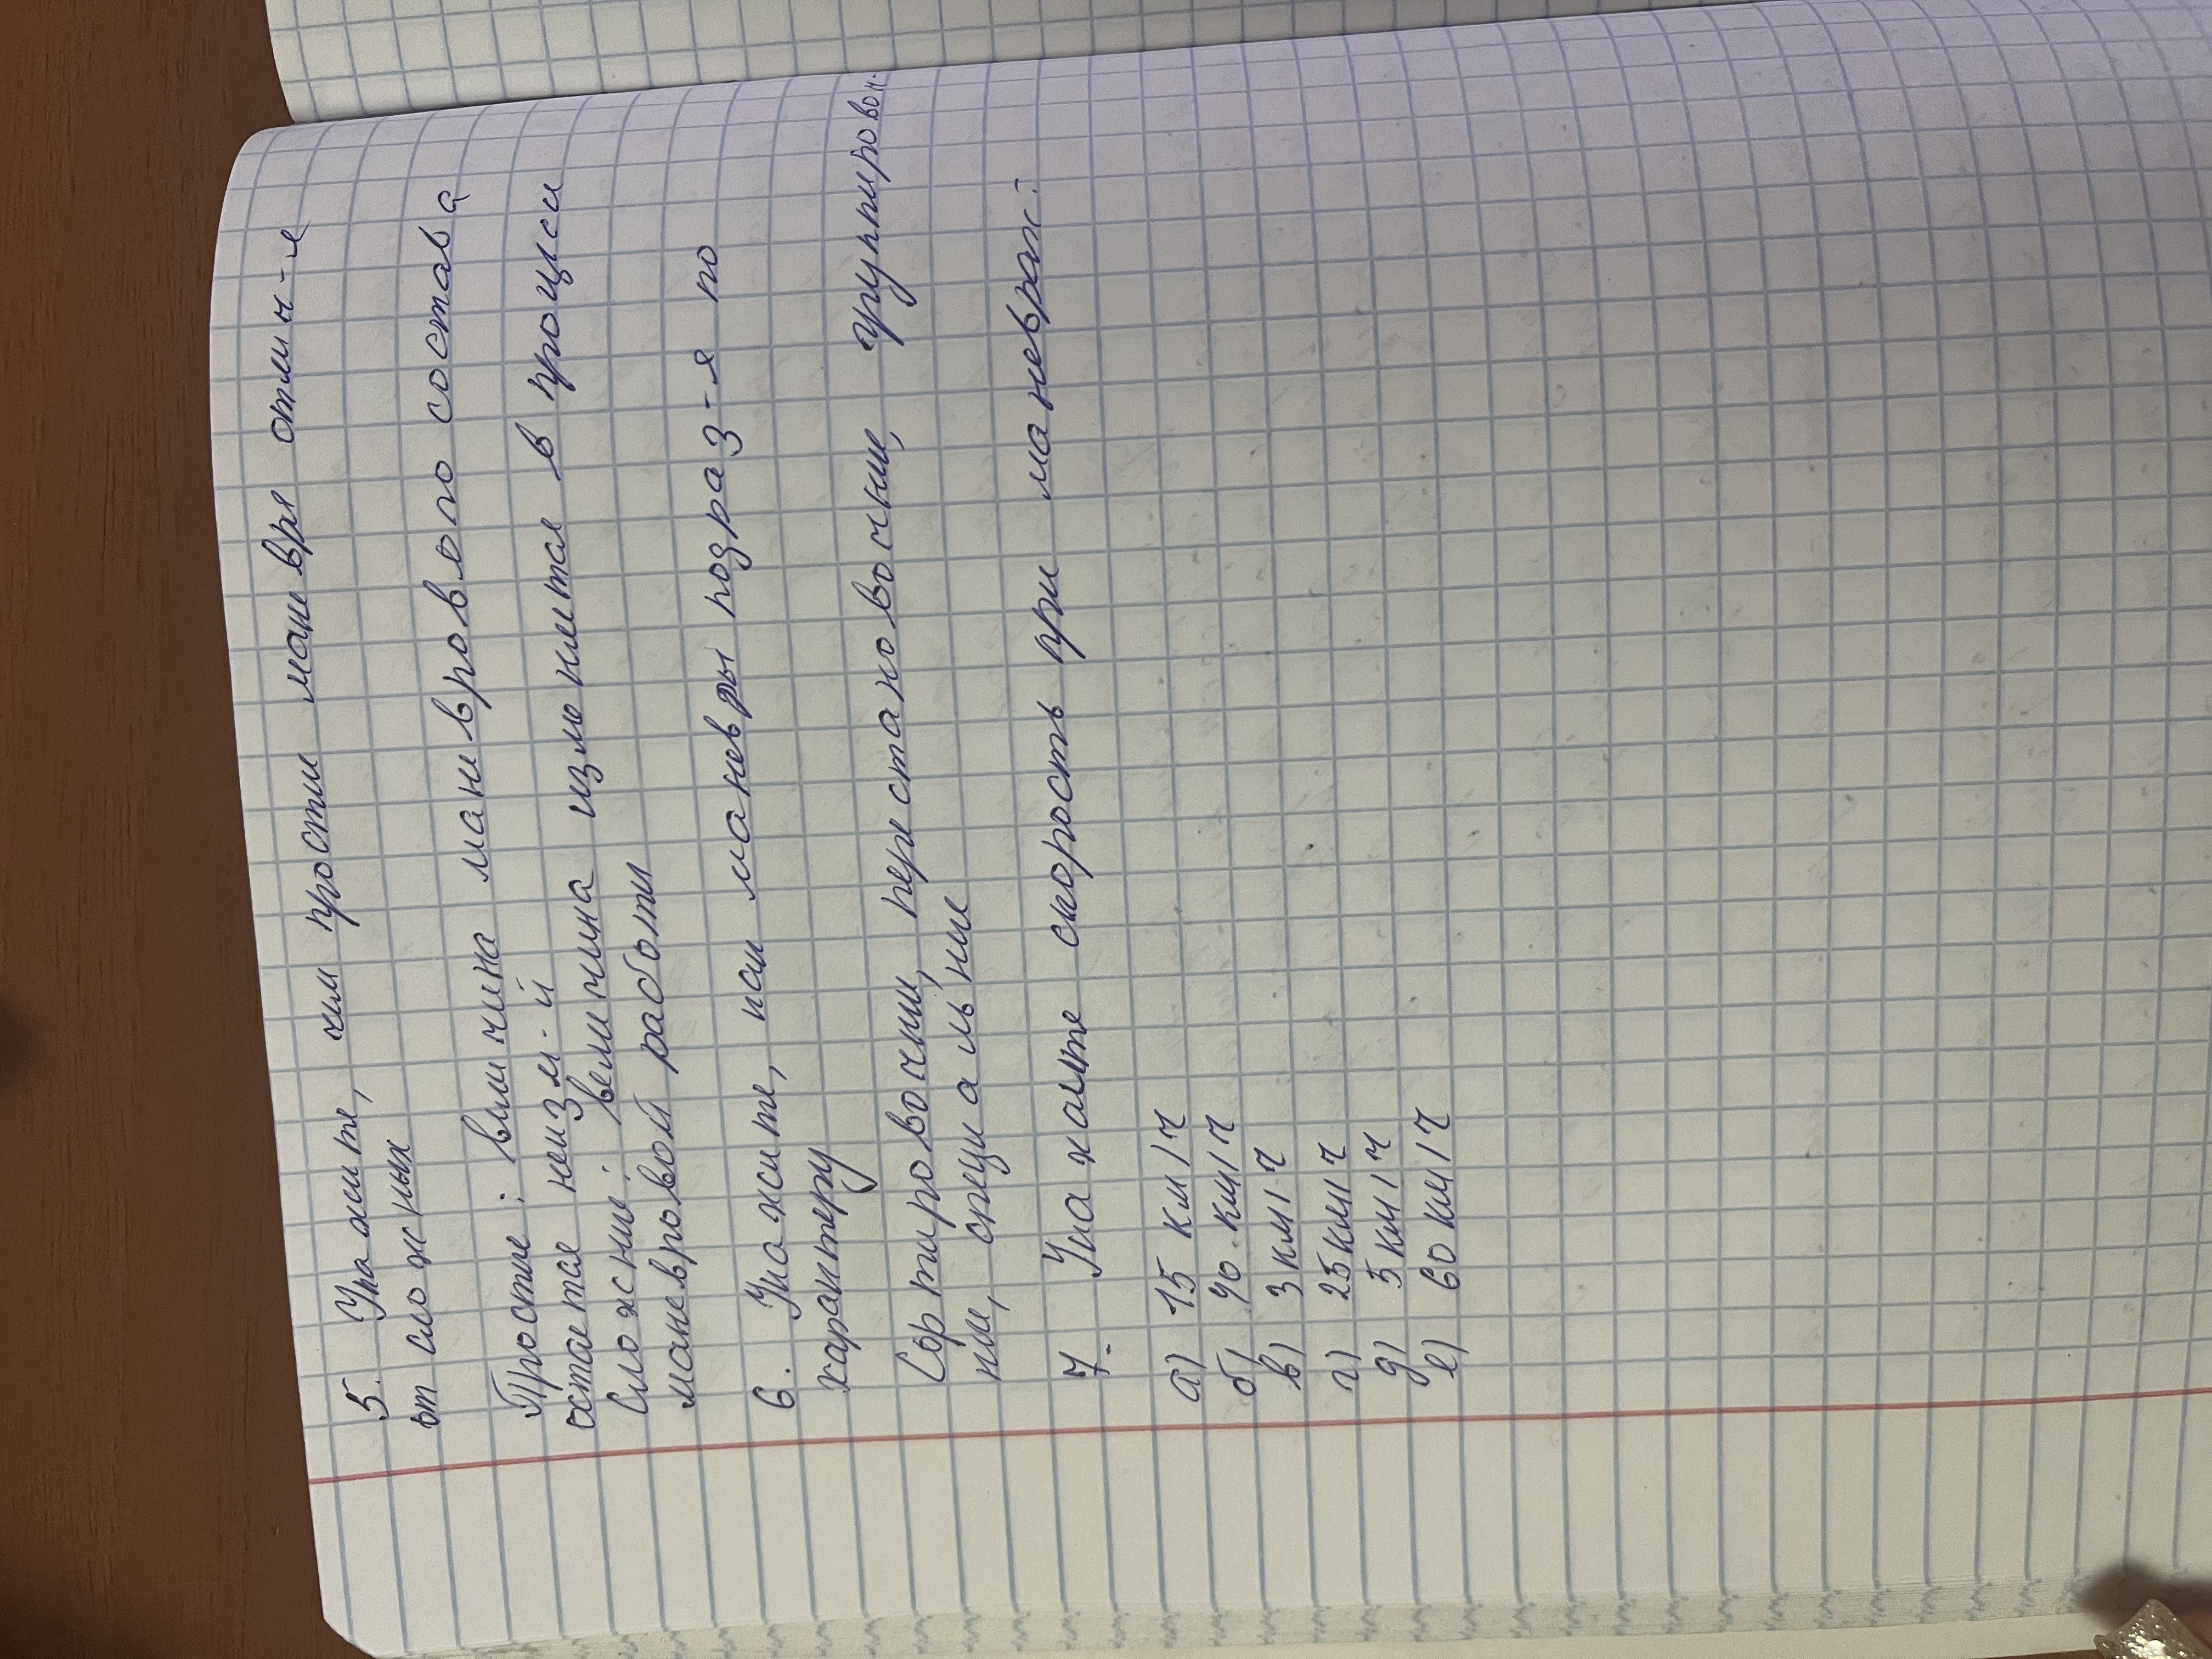 5. Укажите, чем простые маневры отлич-я
от сложных
Простые: величина маневрового состава
остается неизм-й
Сложные: величина изменяется в процессе
маневровой работы
6. Укажите, как маневры подраз-я по
характеру
Сортировочные, перестановочные, группировоч.
ные, специальные
7. Укажите скорость при маневрах:
а) 15 км/ч
б) 40 км/ч
в) 3 км/ч
г) 25 км/ч
д) 5 км/ч
е) 60 км/ч